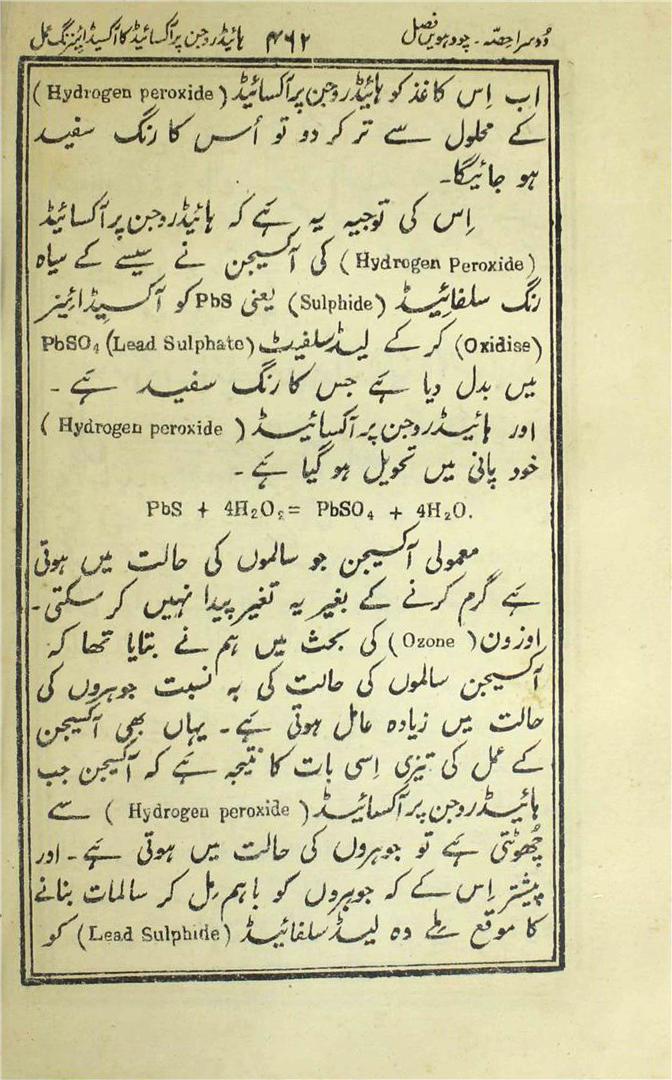 دوسرا حصّہ - چودہویں فصل ۴۶۲ ہائیڈروجن پرآکسائیڈ کا آکسیڈائیزنگ عمل
اب اِس کاغذ کو ہائیڈروجن پرآکسائیڈ (Hydrogen peroxide)
کے محلول سے تر کر دو تو اُس کا رنگ سفید
ہو جائیگا۔
اِس کی توجیہ یہ ہَے کہ ہائیڈروجن پرآکسائیڈ
(Hydrogen Peroxide) کی آکسیجن نے سیسے کے سیاہ
رنگ سلفائیڈ (Sulphide) یعنی PbS کو آکسیڈائیز
(Oxidise) کر کے لیڈسلفیٹ (Lead Sulphate) PbSO₄
میں بدل دیا ہَے جس کا رنگ سفید ہَے۔
اور ہائیڈروجن پرآکسائیڈ (Hydrogen peroxide)
خود پانی میں تحویل ہو گیا ہَے۔
PbS + 4H₂O₂ = PbSO₄ + 4H₂O.
معمولی آکسیجن جو سالموں کی حالت میں ہوتی
ہَے گرم کرنے کے بغیر یہ تغیر پیدا نہیں کر سکتی۔
اوزون (Ozone) کی بحث میں ہم نے بتایا تھا کہ
آکسیجن سالموں کی حالت کی بہ نسبت جوہروں کی
حالت میں زیادہ عامل ہوتی ہَے۔ یہاں بھی آکسیجن
کے عمل کی تیزی اِسی بات کا نتیجہ ہَے کہ آکسیجن جب
ہائیڈروجن پرآکسائیڈ (Hydrogen peroxide) سے
چھُوٹتی ہَے تو جوہروں کی حالت میں ہوتی ہَے۔ اور
پیشتر اِس کے کہ جوہروں کو باہم مِل کر سالمات بنانے
کا موقع ملے وہ لیڈسلفائیڈ (Lead Sulphide) کو